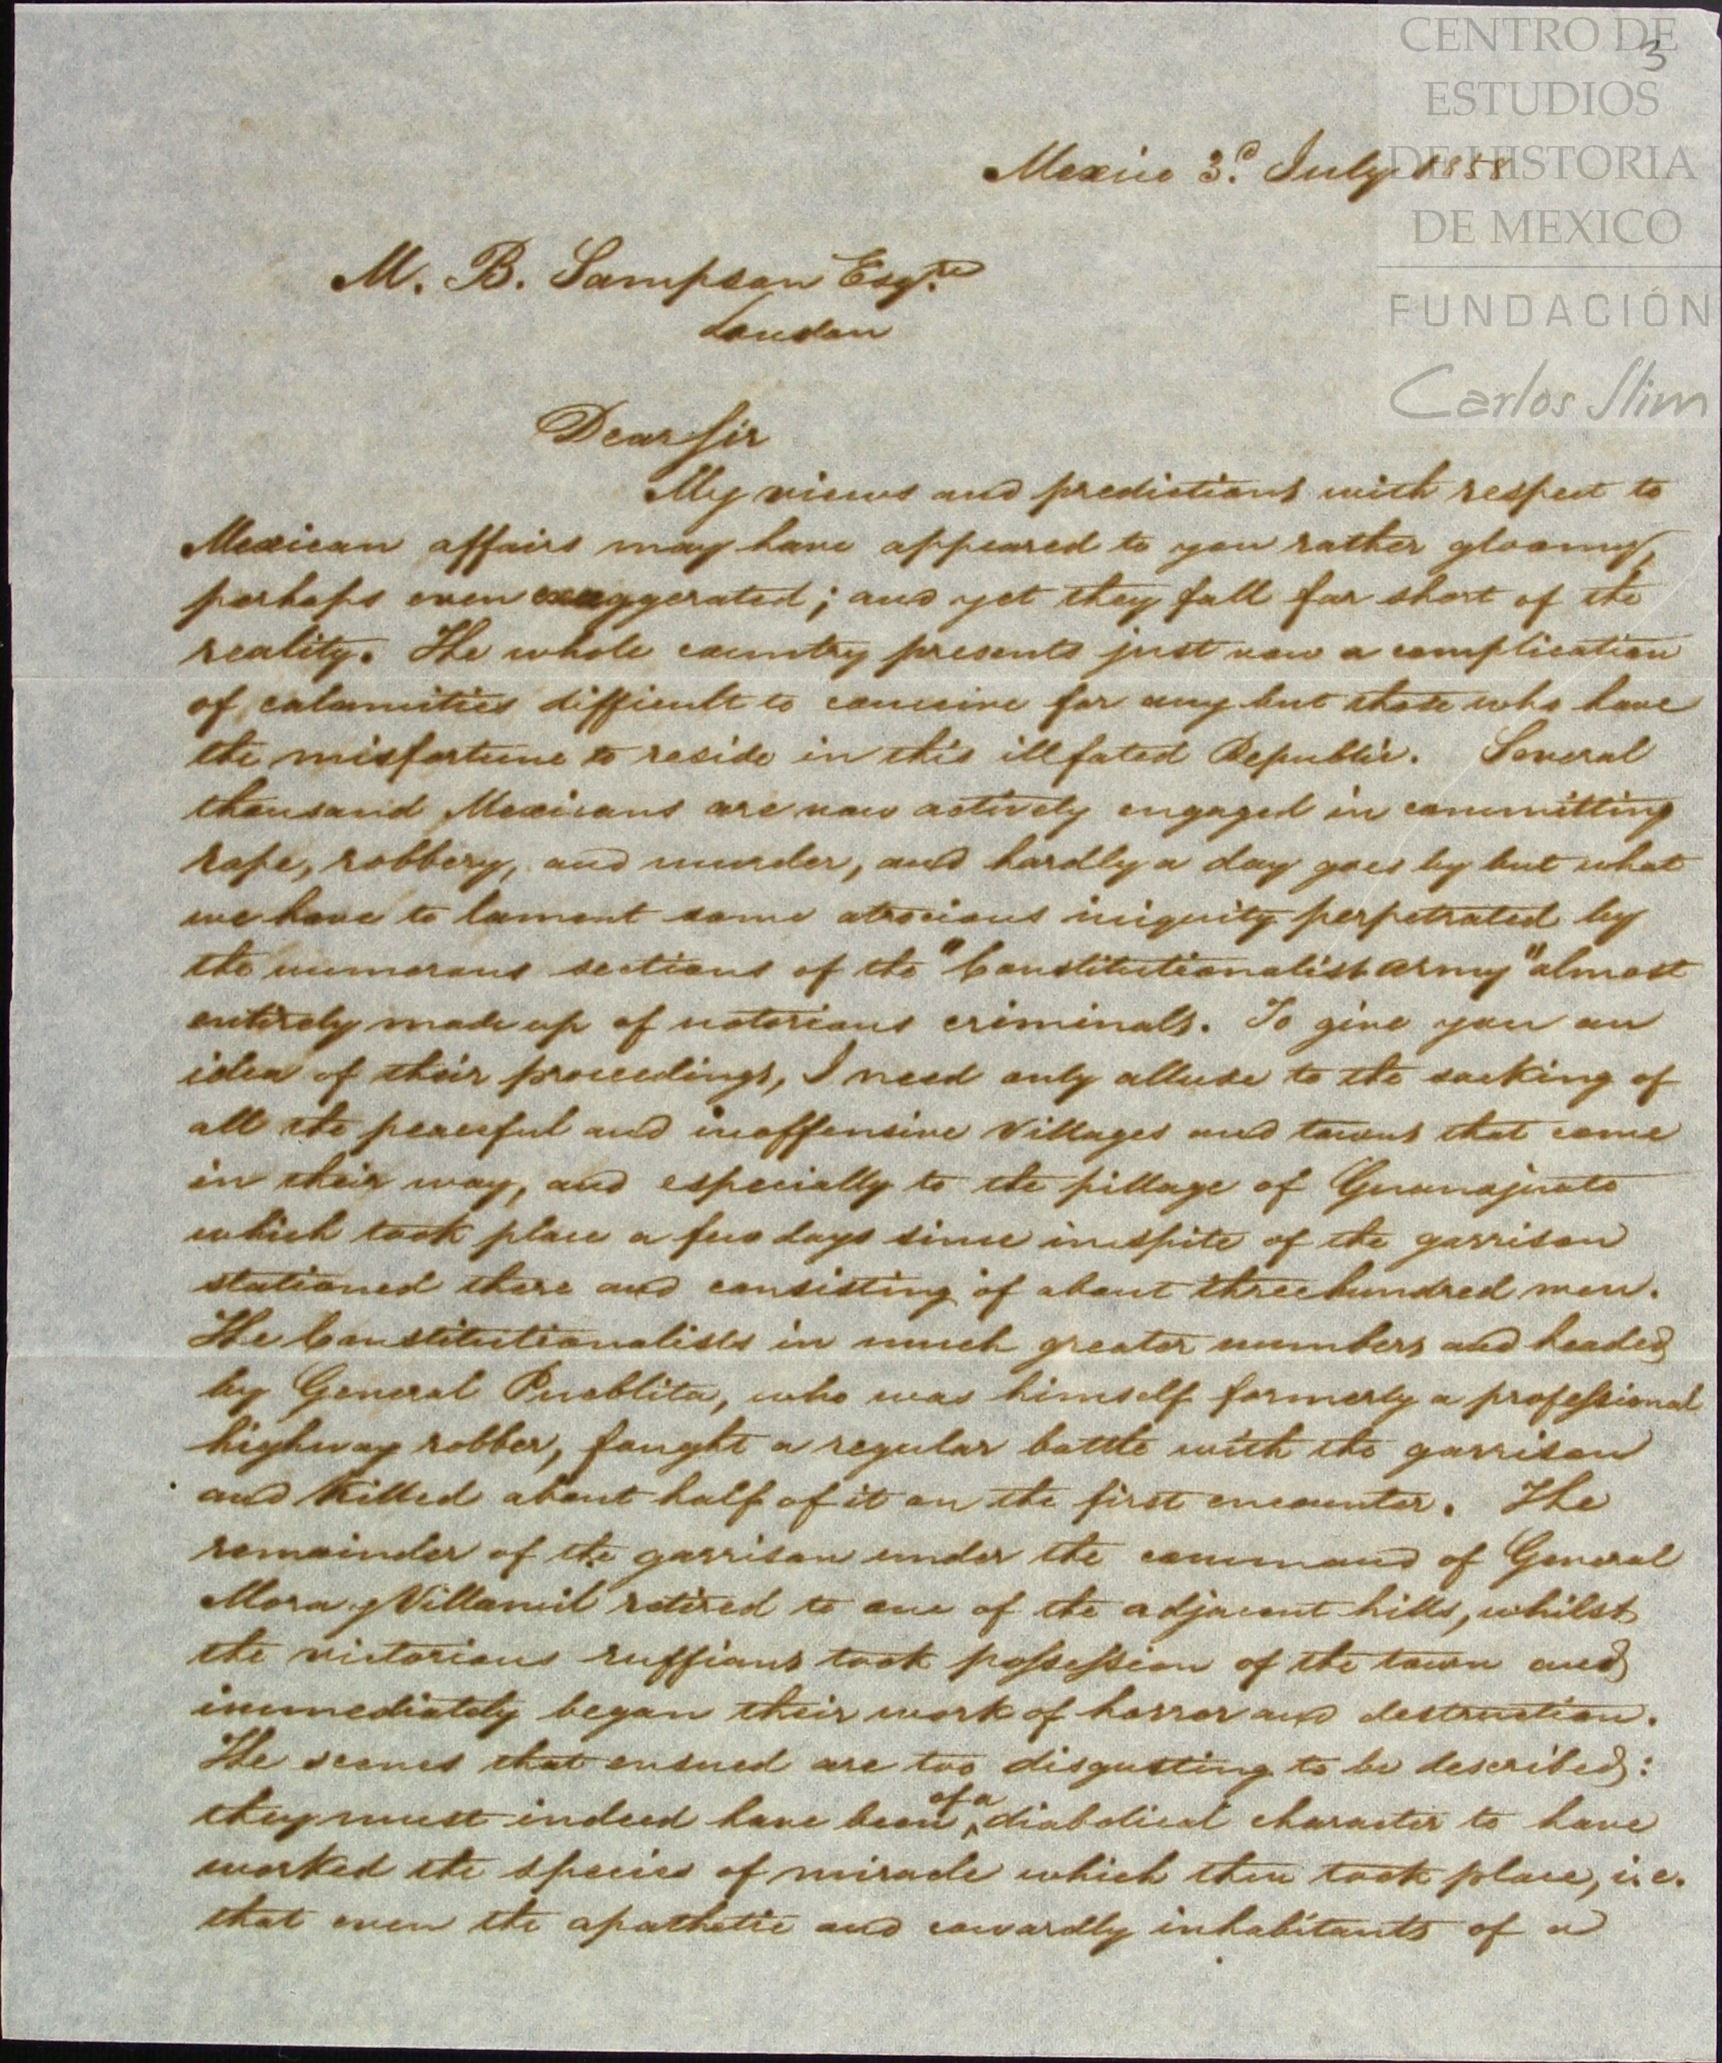 CENTRO DE
ESTUDIOS
DE HISTORIA
DE MEXICO
FUNDACIÓN
Carlos Slim
3
Mexico 3.d July 1858
M. B. Sampson Esqre.
London
Dear Sir
My views and predictions with respect to
Mexican affairs may have appeared to you rather gloomy,
perhaps even exaggerated; and yet they fall far short of the
reality. The whole country presents just now a complication
of calamities difficult to conceive for any but those who have
the misfortune to reside in this illfated Republic. Several
thousand Mexicans are now actively engaged in committing
rape, robbery, and murder, and hardly a day goes by but what
we have to lament some atrocious iniquity perpetrated by
the numerous sections of the "Constitutionalist army" almost
entirely made up of notorious criminals. To give you an
idea of their proceedings, I need only allude to the sacking of
all the peaceful and inoffensive villages and towns that come
in their way, and especially to the pillage of Guanajuato
which took place a few days since inspite of the garrison
stationed there and consisting of about three hundred men.
The Constitutionalists in much greater numbers and headed
by General Pueblita, who was himself formerly a professional
highway robber, fought a regular battle with the garrison
and killed about half of it on the first encounter. The
remainder of the garrison under the command of General
Mora y Villamil retired to one of the adjacent hills, whilst
the victorious ruffians took possession of the town and
immediately began their work of horror and destruction.
The scenes that ensued are too disgusting to be described:
they must indeed have been of a diabolical character to have
worked the species of miracle which then took place, i.e.
that even the apathetic and cowardly inhabitants of a